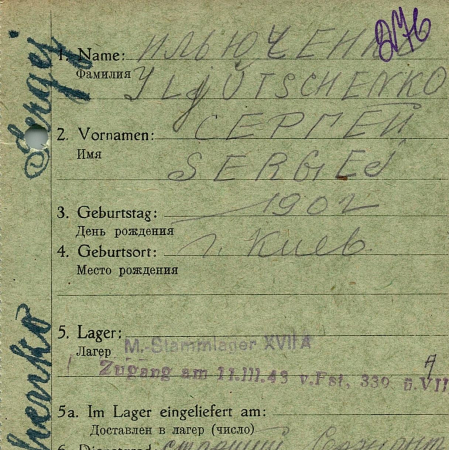 276
1. Name: ИЛЬЮЧЕНК
Фамилия
ILJÜTSCHENKO
2. Vornamen: СЕРГЕЙ
Имя
SERGEJ
3. Geburtstag: 1902
День рождения
4. Geburtsort: г. Киев
Место рождения
5. Lager:
Лагер
M.-Stammlager XVII A
Zugang am 11.III.43 v. Fst. 330
5a. Im Lager eingeliefert am:
Доставлен в лагер (число)
6. Dienstgrad старший
Sergej
henko